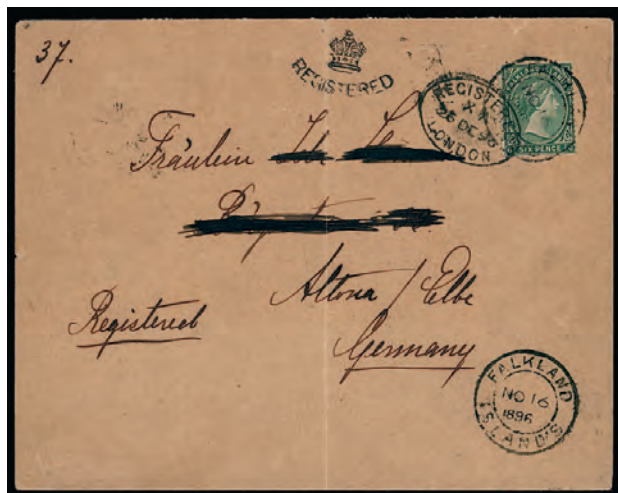 37.
REGISTERED
REGISTERED
26 DE 96
LONDON
SIX PENCE
Fräulein
Altona / Elbe
Registered
Germany
FALKLAND
NO 16
1896
ISLANDS